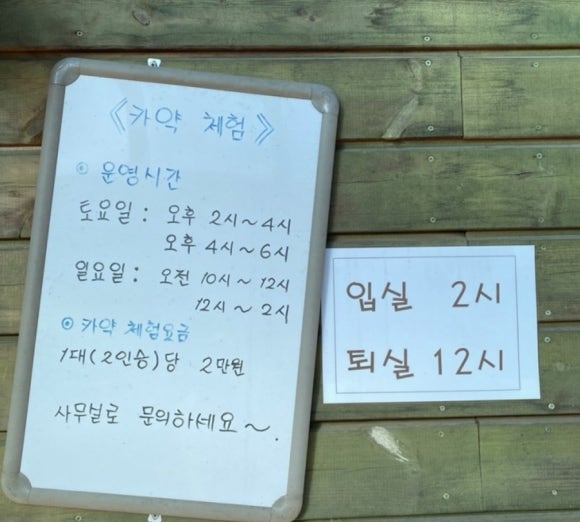 《카약 체험》
◎ 운영시간
토요일 : 오후 2시~4시
오후 4시~6시
일요일 : 오전 10시~12시
12시~2시
◎ 카약 체험요금
1대(2인승)당 2만원
사무실로 문의하세요~.
입실 2시
퇴실 12시